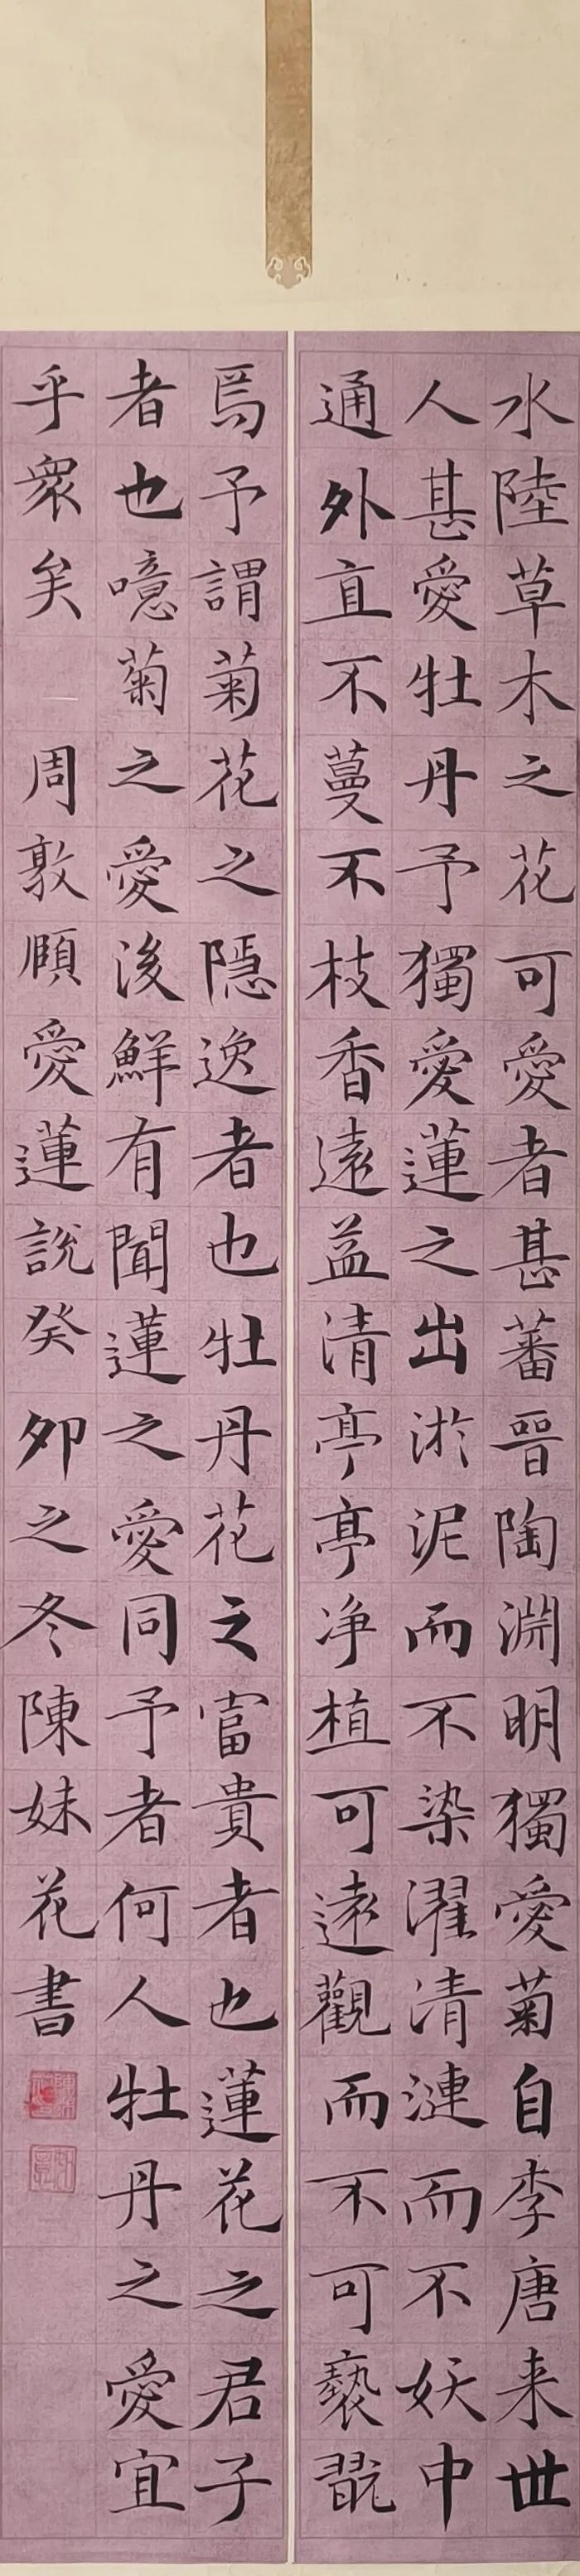 水陸草木之花可愛者甚蕃晉陶淵明獨愛菊自李唐来世
人甚愛牡丹予獨愛蓮之出淤泥而不染濯清漣而不妖中
通外直不蔓不枝香遠益清亭亭净植可遠觀而不可褻翫
焉予謂菊花之隱逸者也牡丹花之富貴者也蓮花之君子
者也噫菊之愛後鮮有聞蓮之愛同予者何人牡丹之愛宜
乎衆矣 周敦頤愛蓮說癸卯之冬陳妹花書